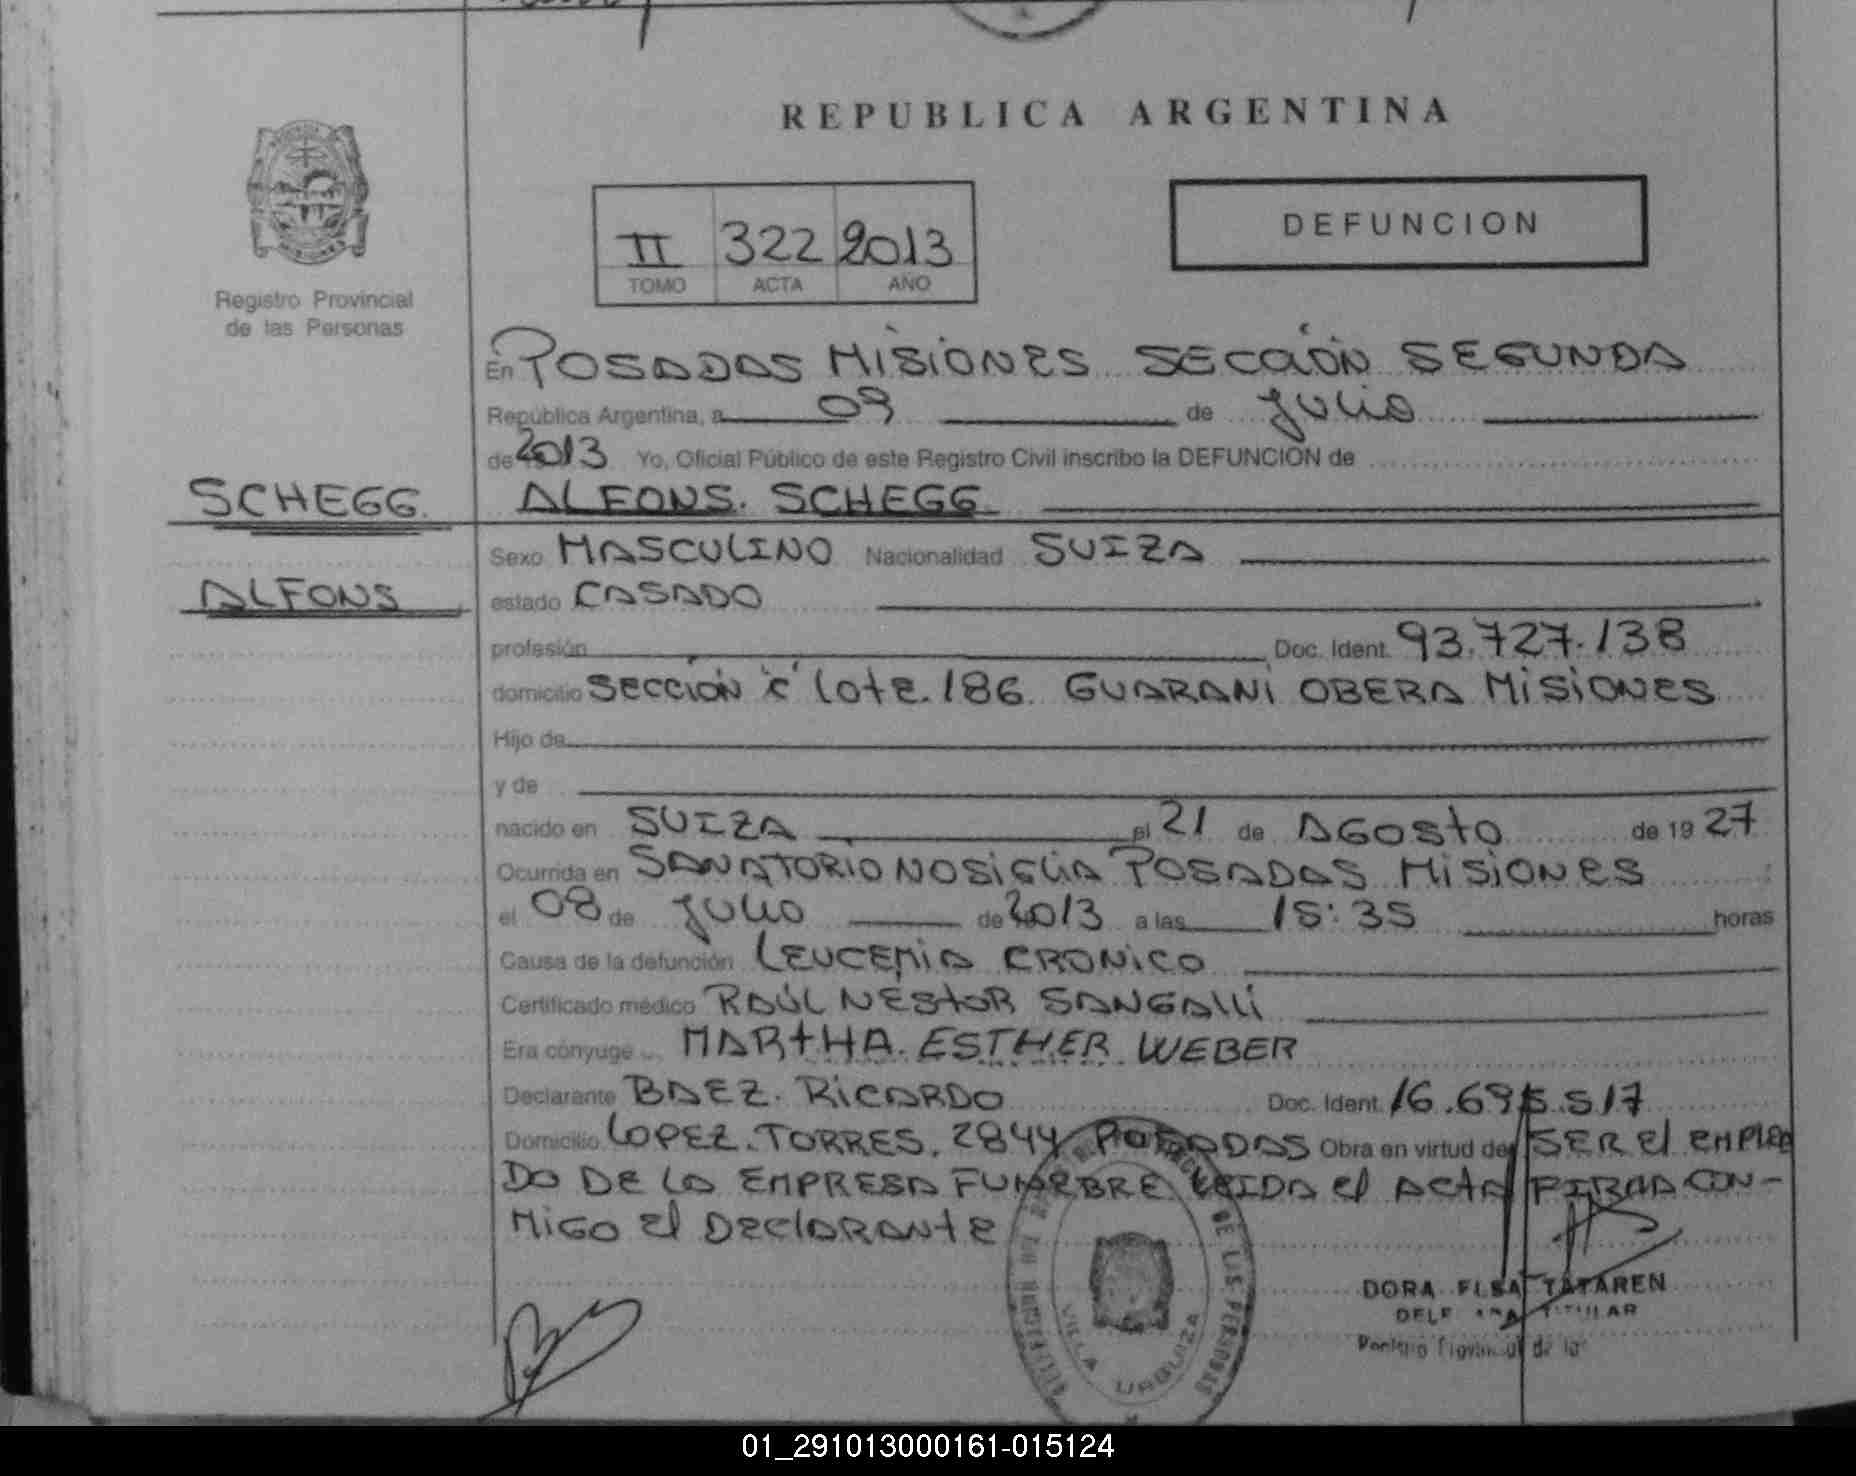 REPUBLICA ARGENTINA
II 322 2013
TOMO ACTA AÑO
DEFUNCION
Registro Provincial
de las Personas
En POSADAS MISIONES SECCIÓN SEGUNDA
República Argentina, a 09 de Julio
de 2013 Yo, Oficial Público de este Registro Civil inscribo la DEFUNCION de
SCHEGG ALFONS. SCHEGG
Sexo MASCULINO Nacionalidad SUIZA
ALFONS estado CASADO
profesión Doc. Ident. 93.727.138
domicilio SECCIÓN "C" lote. 186. GUARANI OBERA MISIONES
Hijo de
y de
nacido en SUIZA el 21 de AGOSTO de 19 27
Ocurrida en SANATORIO NOSIGLIA POSADAS MISIONES
el 08 de Julio de 2013 a las 15:35 horas
Causa de la defunción LEUCEMIA CRONICO
Certificado médico RAÚL NESTOR SANGALLI
Era cónyuge MARTHA. ESTHER WEBER
Declarante BAEZ. RICARDO Doc. Ident. 16.695.517
Domicilio LOPEZ. TORRES. 2844 POSADAS Obra en virtud de SER El EMPLEA
DO DE LA EMPRESA FUNEBRE LEIDA El ACTA FIRMA CON-
MIGO El DECLARANTE
DE LAS PERSONAS
VILLA URQUIZA
DORA ELSA TATAREN
DELEGADA TITULAR
Registro Provincial de la
01_291013000161-015124